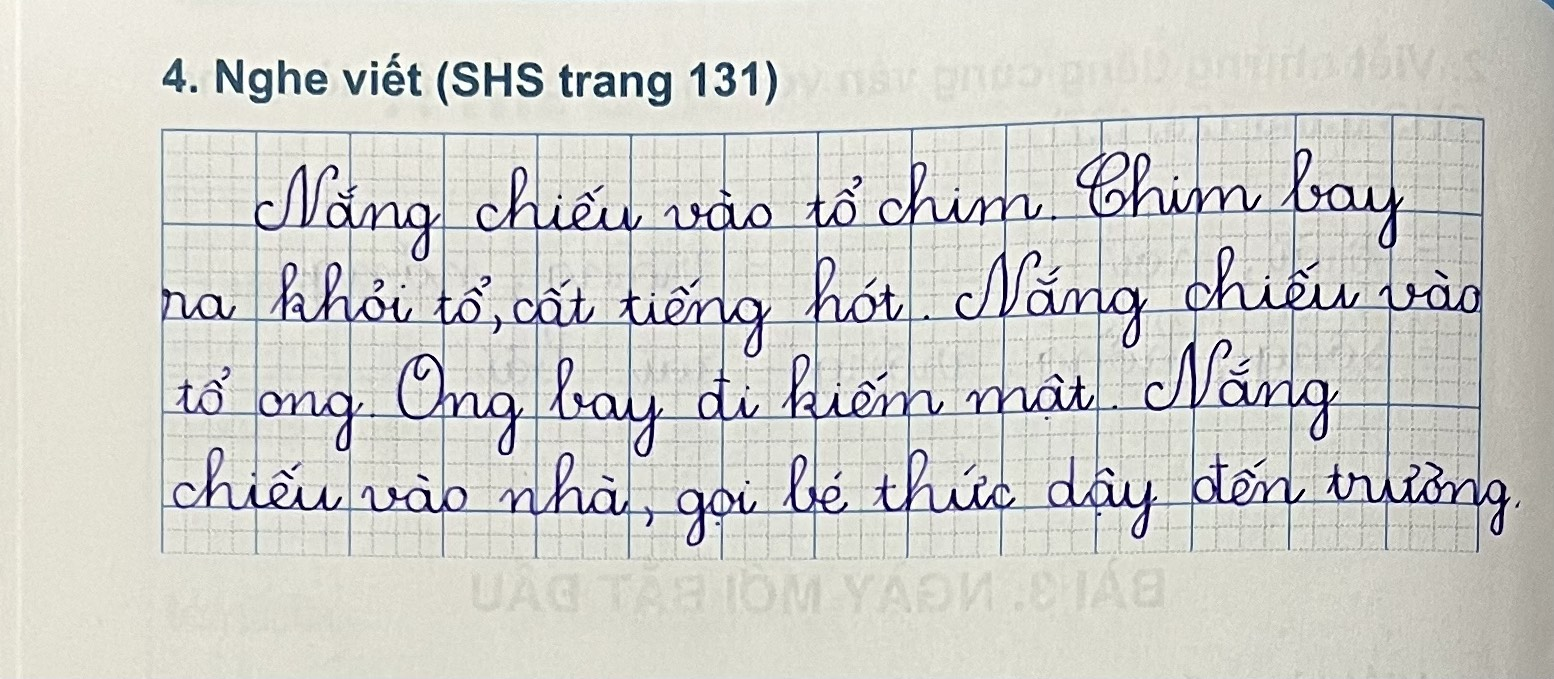 4. Nghe viết (SHS trang 131)
Nắng chiếu vào tổ chim. Chim bay
ra khỏi tổ, cất tiếng hót. Nắng chiếu vào
tổ ong. Ong bay đi kiếm mật. Nắng
chiếu vào nhà, gọi bé thức dậy đến trường.
BÀI 3. NGÀY MỚI BẮT ĐẦU